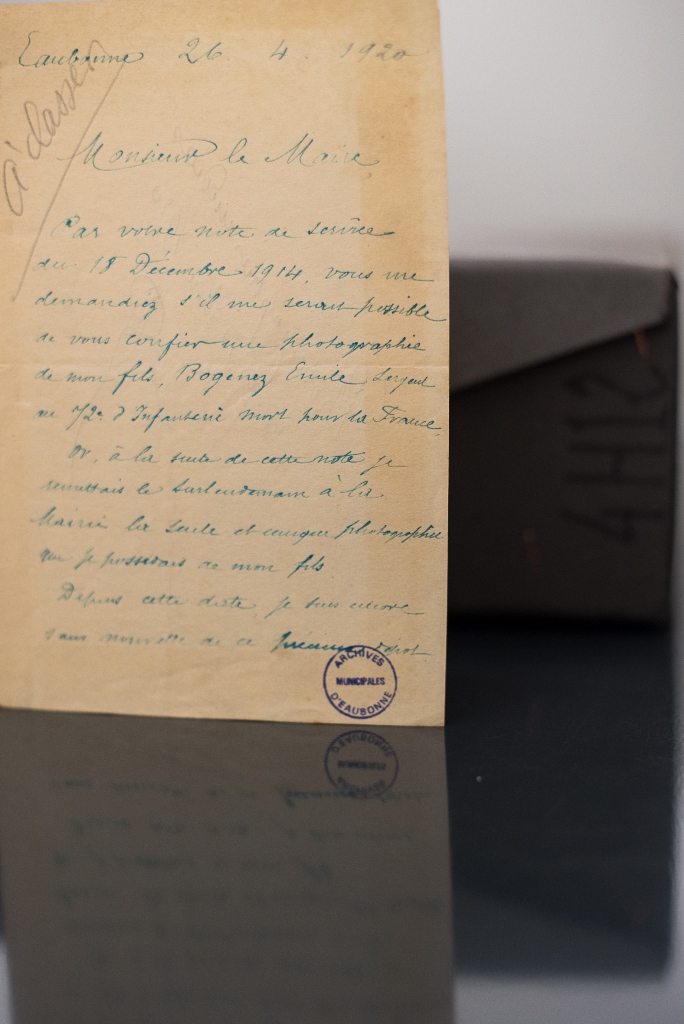 Eaubonne 26. 4. 1920
à classer
Monsieur le Maire
Par votre note de service
du 18 Décembre 1914, vous me
demandiez s'il me serait possible
de vous confier une photographie
de mon fils, Bogenez Emile Sergent
au 72e d'Infanterie mort pour la France.
Or, à la suite de cette note je
remettais le surlendemain à la
Mairie la seule et unique photographie
que je possédais de mon fils
Depuis cette date, je suis encore
sans nouvelle de ce précieux dépot.
ARCHIVES
MUNICIPALES
D'EAUBONNE
4H12